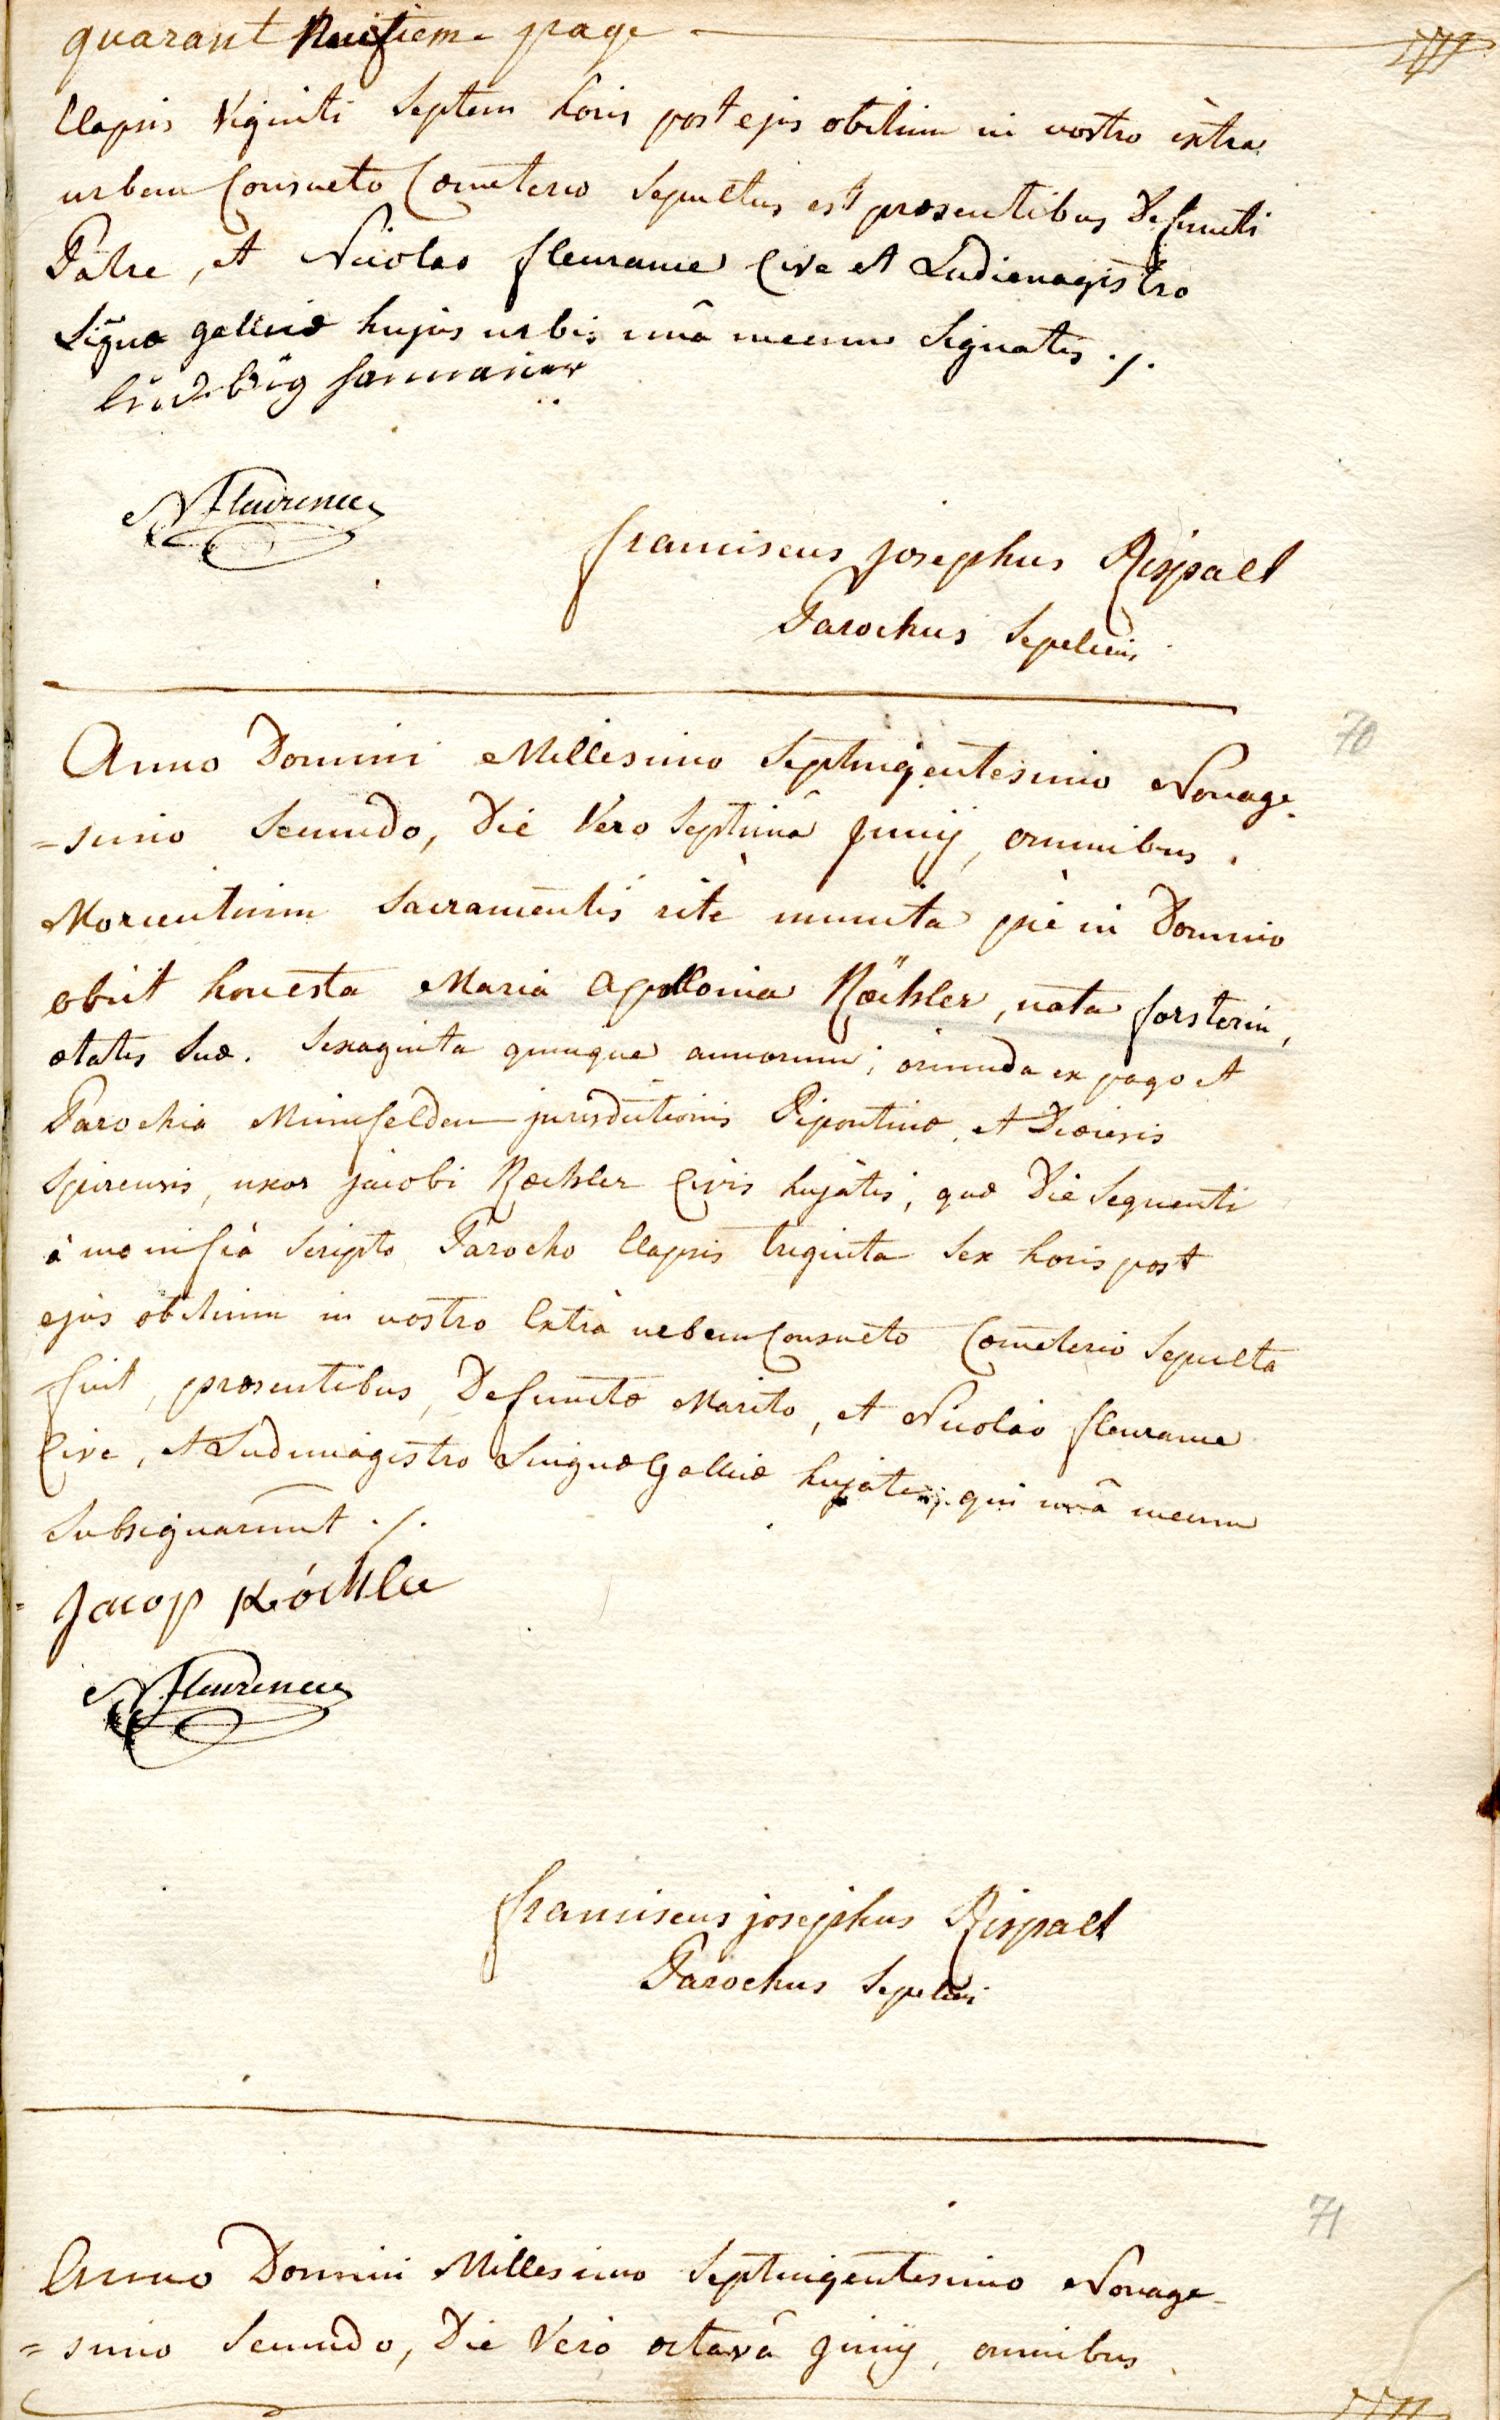 quarant huitiem page
Elapsis Viginti Septem horis post ejus obitum in nostro extra
urbem Consueto Cœmeterio Sepultus est præsentibus Defuncti
Patre, et Nicolao fleurance Cive et Ludimagistro
Liguæ gallicæ hujus urbis unâ mecum Signatis ./.
N fleurence
franciscus josephus Rispalt
Parochus Sepeliens
70
Anno Domini Millesimo Septingentesimo Nonage
=simo Secundo, Die Vero Septimâ Junij, omnibus
Morientium Sacramentis ritè munita piè in Domino
obiit honesta Maria Apollonia Köchler, nata forsterin,
ætatis Suæ Sexaginta quinque annorum; oriunda ex pago et
Parochia Minnfelden jurisdictionis Bipontinæ, et Diœcesis
Spirensis, uxor jacobi Kœchler Civis hujatis, quæ Die Sequenti
à me infrà Scripto Parocho Elapsis triginta Sex horis post
ejus obitum in nostro Extrà urbem Consueto Cœmeterio Sepulta
fuit, præsentibus, Defunctæ Marito, et Nicolào fleurance
Cive, et Ludimagistro Linguæ Gallicæ hujate, qui unâ mecum
Subsignarunt ./.
Jacop Köchler
N fleurence
franciscus josephus Rispalt
Parochus Sepeliens
71
Anno Domini Millesimo Septingentesimo Nonage
=simo Secundo, Die Vero octavâ Junij, omnibus